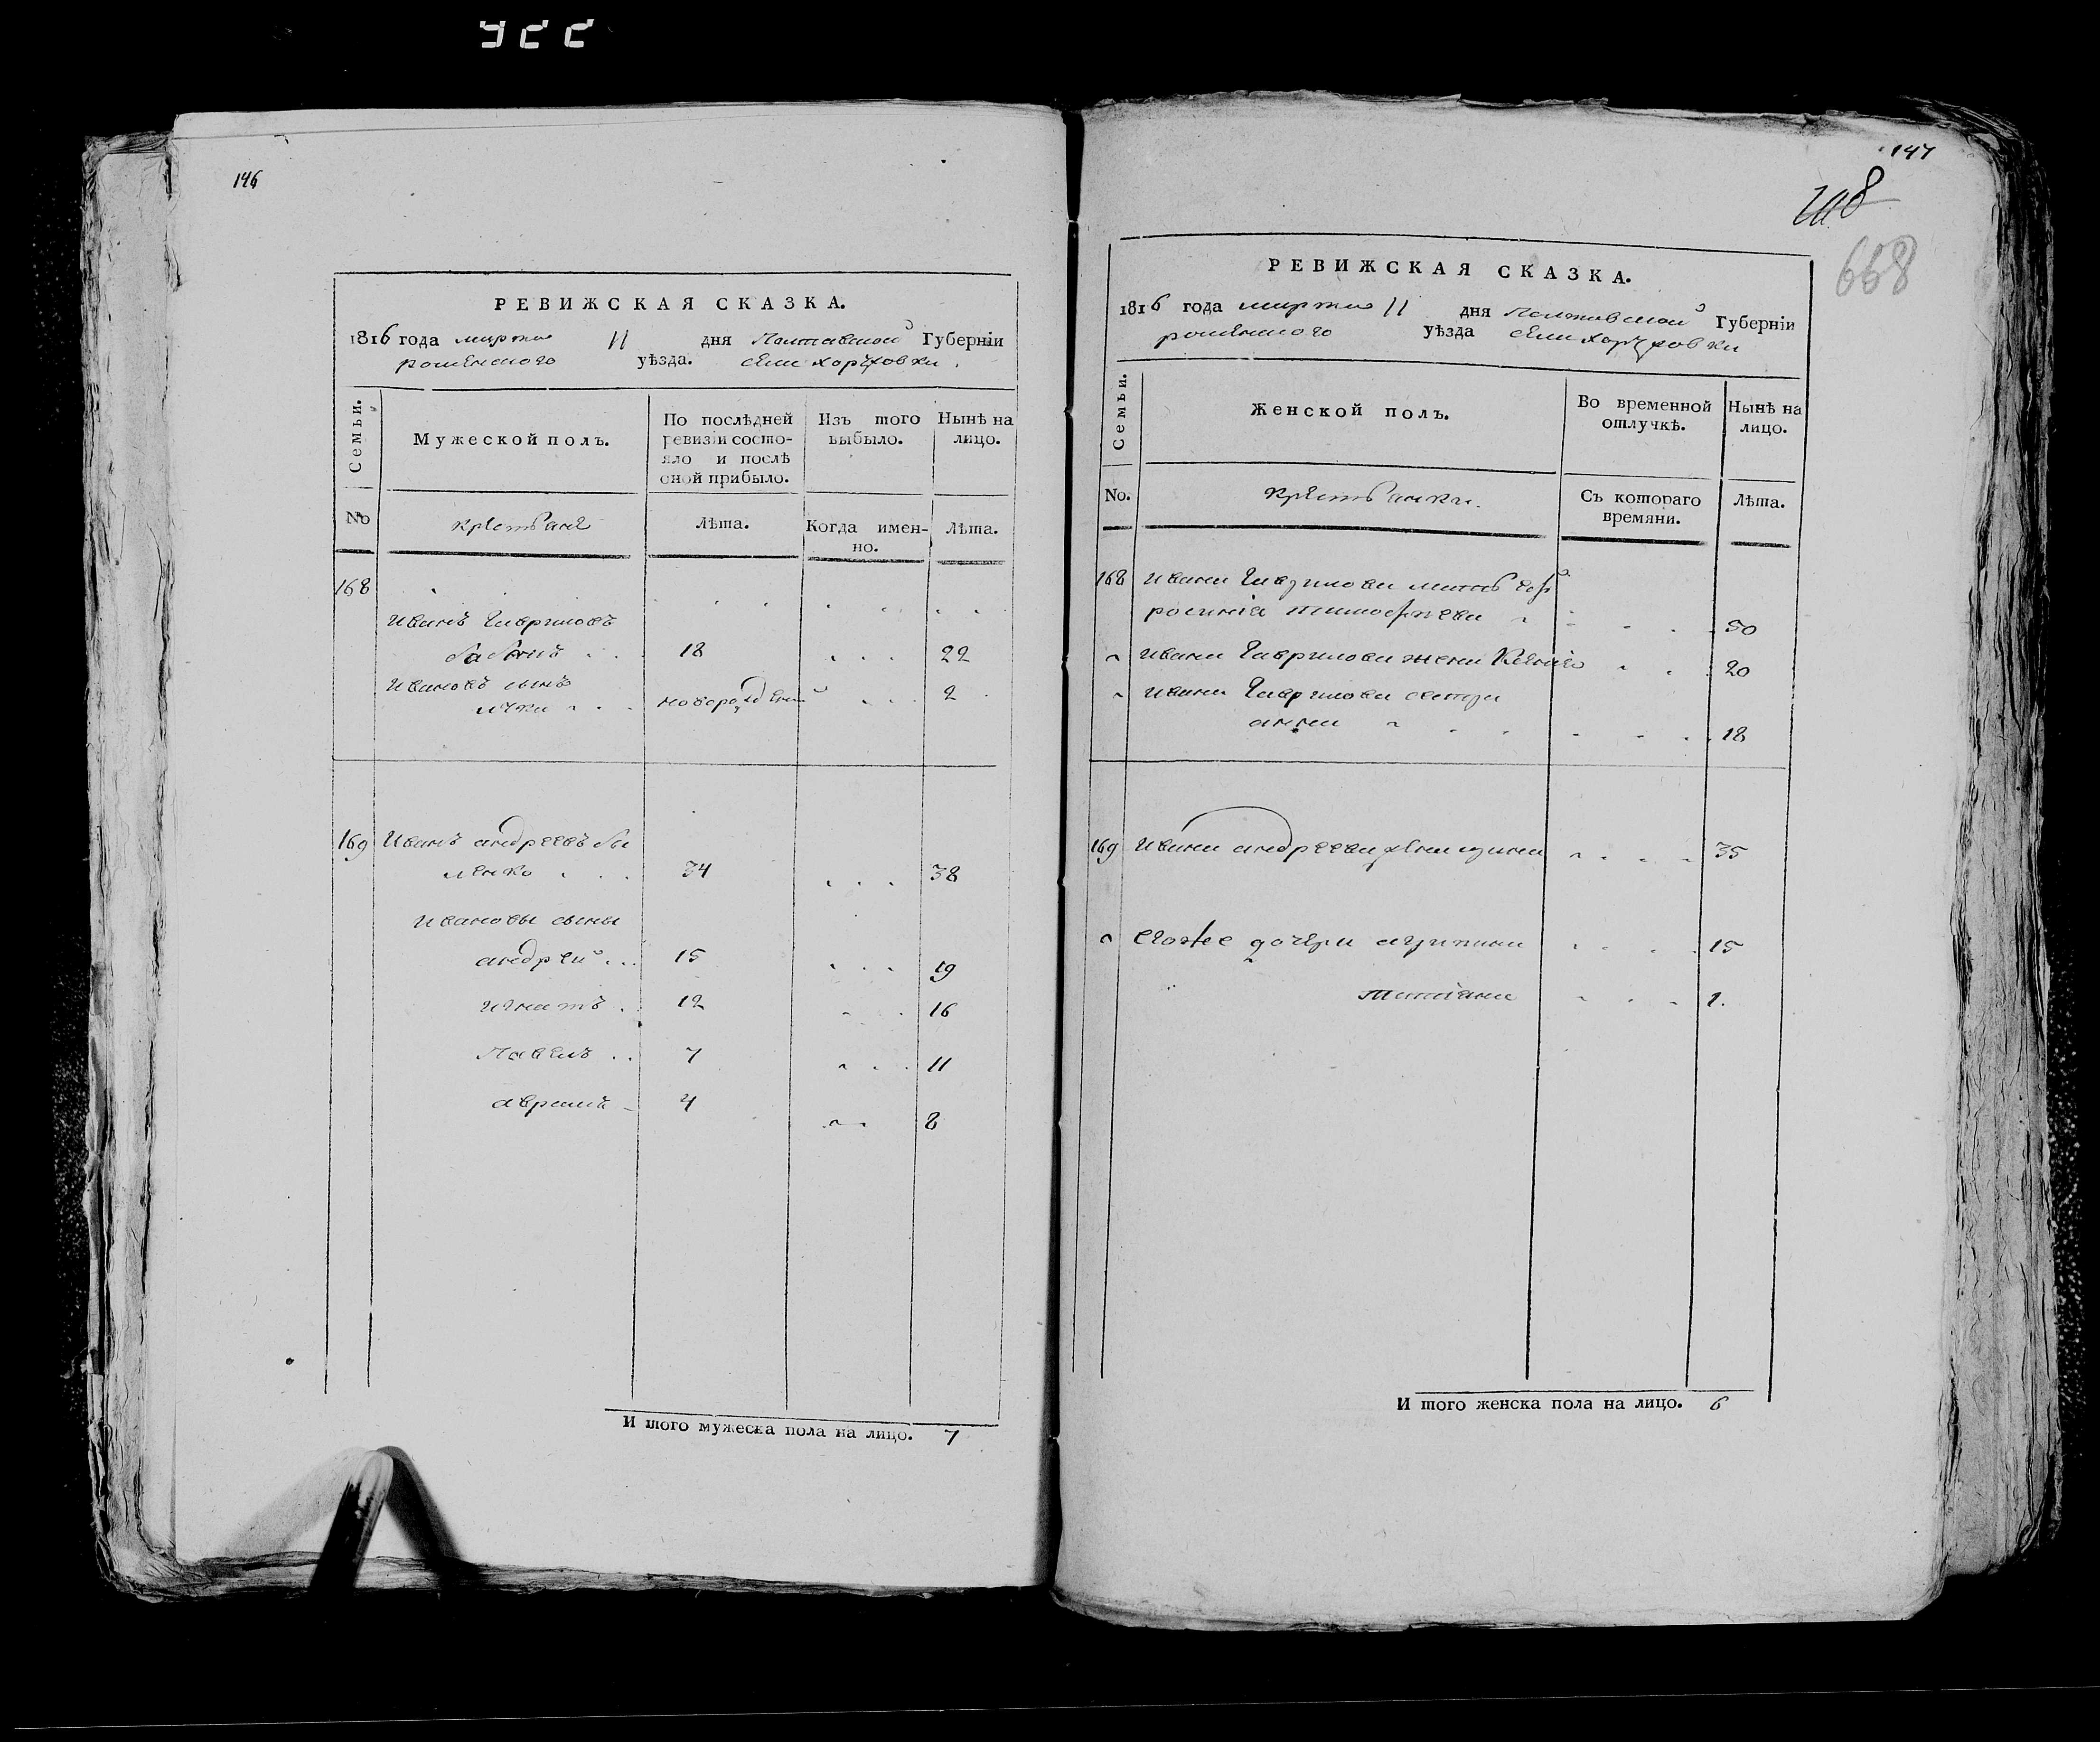 146
РЕВИЖСКАЯ СКАЗКА.
1816 года марта 11 дня Полтавской Губернїи
роменского уѣзда. села хоружовки.
Семьи.
Мужеской полъ.
По послѣдней
ревизїи состо-
яло и послѣ
оной прибыло.
Изъ того
выбыло.
Нынѣ на
лицо.
No
крестьяне
Лѣта.
Когда имен-
но.
Лѣта.
168
Иванъ Гавриловъ
18 22
Ивановъ сынъ
новорожденный 2
169 Иванъ андреевъ
ленко 34 38
Ивановы сыны
андрей 15 19
игнатъ 12 16
Павелъ 7 11
аврамъ 4 8
И того мужеска пола на лицо. 7
147
668
РЕВИЖСКАЯ СКАЗКА.
1816 года марта 11 дня Полтавской Губернїи
роменского уѣзда села хоружовки
Семьи.
Женской полъ.
Во временной
отлучкѣ.
Нынѣ на
лицо.
No.
крестьянки.
Съ котораго
времяни.
Лѣта.
168 Ивана Гаврилова мать еф
росинїа тимофѣева 50
Ивана Гаврилова жена Ксенїя 20
Ивана Гаврилова сестра
анна 18
169 Ивана андреева жена ирина 35
Егоже дочери агрипина 15
татїана 1.
И того женска пола на лицо. 6